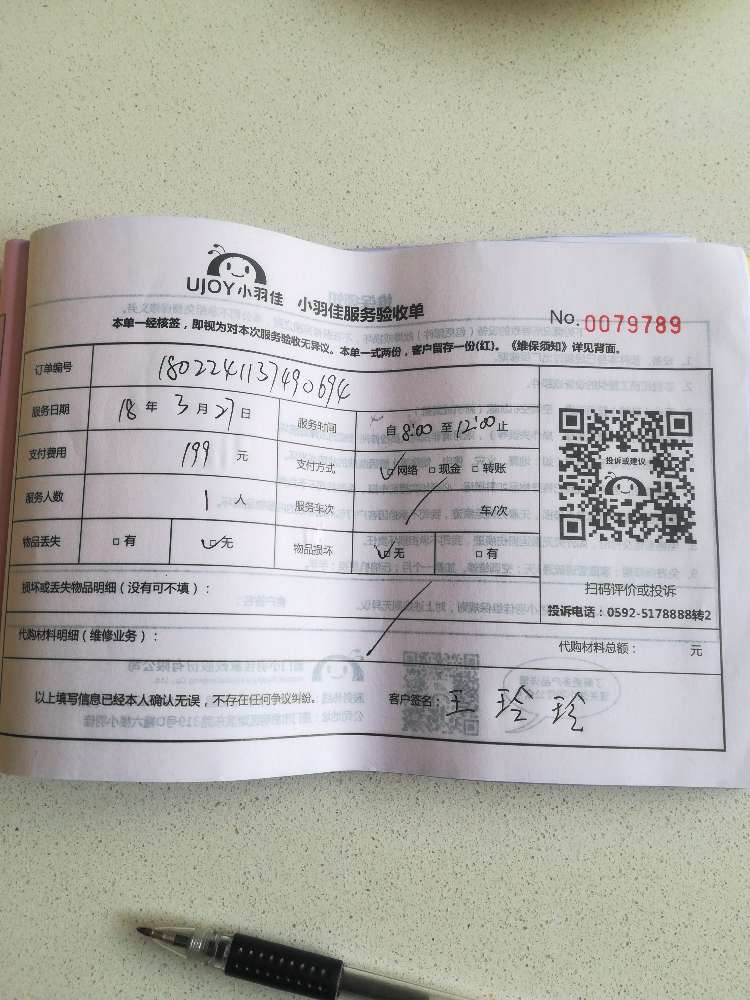 UJOY小羽佳 小羽佳服务验收单
No. 0079789
本单一经核签，即视为对本次服务验收无异议。本单一式两份，客户留存一份(红)。《维保须知》详见背面。
订单编号 1802241137490694
服务日期 18 年 3 月 27 日 服务时间 自 8:00 至 12:00 止
支付费用 199 元 支付方式 ☑网络 □现金 □转账
投诉或建议
服务人数 1 人 服务车次 车/次
物品丢失 □有 ☑无 物品损坏 ☑无 □有
扫码评价或投诉
损坏或丢失物品明细（没有可不填）：
投诉电话：0592-5178888转2
代购材料明细（维修业务）：
代购材料总额： 元
以上填写信息已经本人确认无误，不存在任何争议纠纷。 客户签名：王玲珍